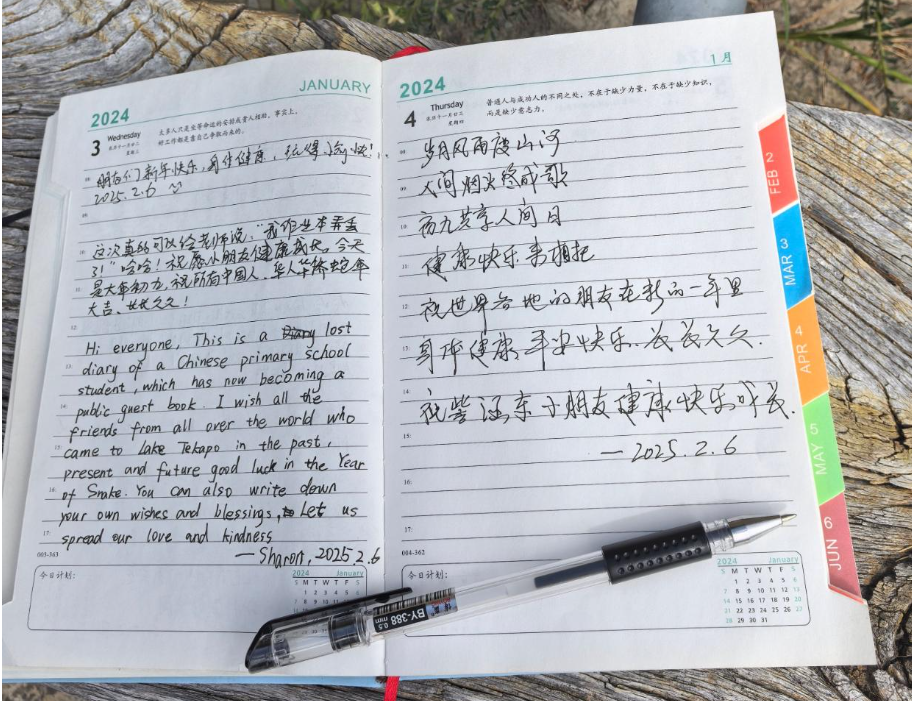 2024
JANUARY
3
Wednesday
农历十一月廿二
星期三
朋友们新年快乐，身体健康，玩得愉快！
2025.2.6
这次真的可以给老师说，“我作业本弄丢
了！”哈哈！祝愿小朋友健康成长。今天
是大年初九，祝所有中国人、华人华侨蛇年
大吉、长长久久！
Hi everyone, This is a Diary lost
diary of a Chinese primary school
student, which has now becoming a
public guest book. I wish all the
friends from all over the world who
came to Lake Tekapo in the past,
present and future good luck in the Year
of Snake. You can also write down
your own wishes and blessings, to Let us
spread our love and kindness
— Sharon, 2025.2.6
003-363
今日计划：
2024 January
S M T W T F S
1 2 3 4 5 6
7 8 9 10
2024
1月
4
Thursday
农历十一月廿三
星期四
普通人与成功人的不同之处，不在于缺少力量，不在于缺少知识，
而是缺少意志力。
岁月风雨度山河
人间烟火终成歌
初九共享人间日
健康快乐来相抱
祝世界各地的朋友在新的一年里
身体健康，平安快乐，长长久久．
小朋友健康快乐成长．
— 2025.2.6
004-362
今日计划：
2024 January
S M T W T F S
1 2 3 4 5 6
7 8 9 10 11 12 13
14 15 16 17 18 19 20
21 22 23 24 25 26 27
28 29 30 31
FEB 2
MAR 3
APR 4
MAY 5
JUN 6
BY-388
0.5
mm